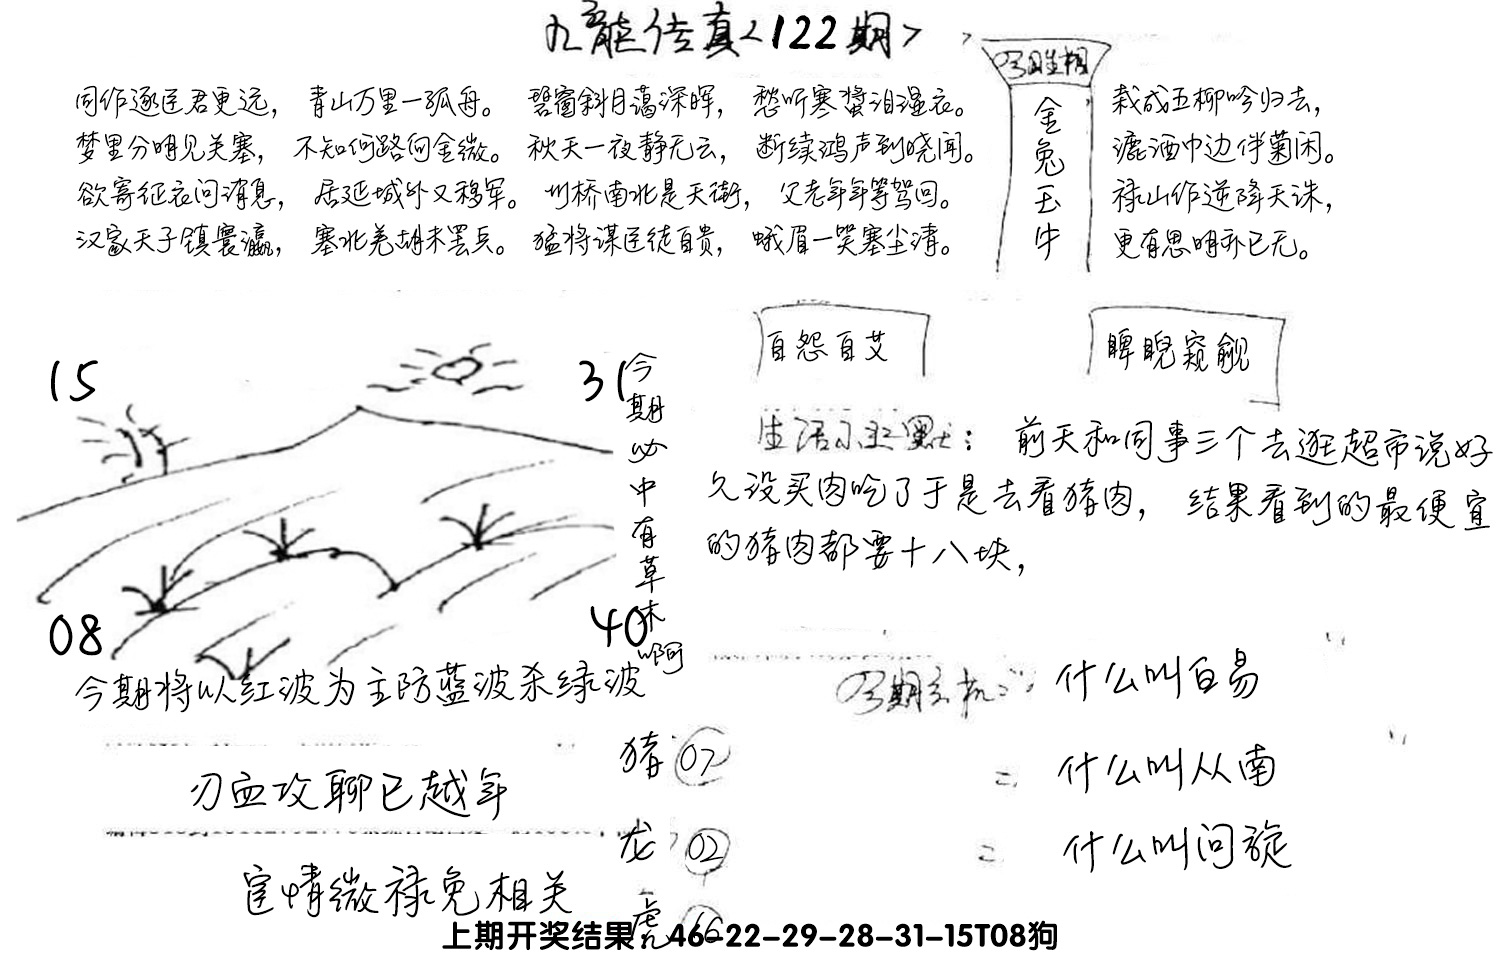 九龍传真<122期>
今日生相
金兔玉牛
同作逐臣君更远，青山万里一孤舟。碧窗斜月蔼深晖，愁听寒螀泪湿衣。
梦里分明见关塞，不知何路向金微。秋天一夜静无云，断续鸿声到晓闻。
欲寄征衣问消息，居延城外又移军。州桥南北是天街，父老年年等驾回。
汉家天子镇寰瀛，塞北羌胡未罢兵。猛将谋臣徒自贵，蛾眉一笑塞尘清。
栽成五柳吟归去，
漉酒中边伴菊闲。
禄山作逆降天诛，
更有思明亦已无。
自怨自艾
睥睨窥觎
15
31
08
40
今期必中有草木啊
生活小幽默：前天和同事三个去逛超市说好
久没买肉吃了于是去看猪肉，结果看到的最便宜
的猪肉都要十八块，
今期将以红波为主防蓝波杀绿波
刃血攻聊已越年
宦情微禄免相关
猪 07
龙 02
虎 16
今期玄机：什么叫白易
= 什么叫从南
= 什么叫问旋
上期开奖结果：46-22-29-28-31-15T08狗